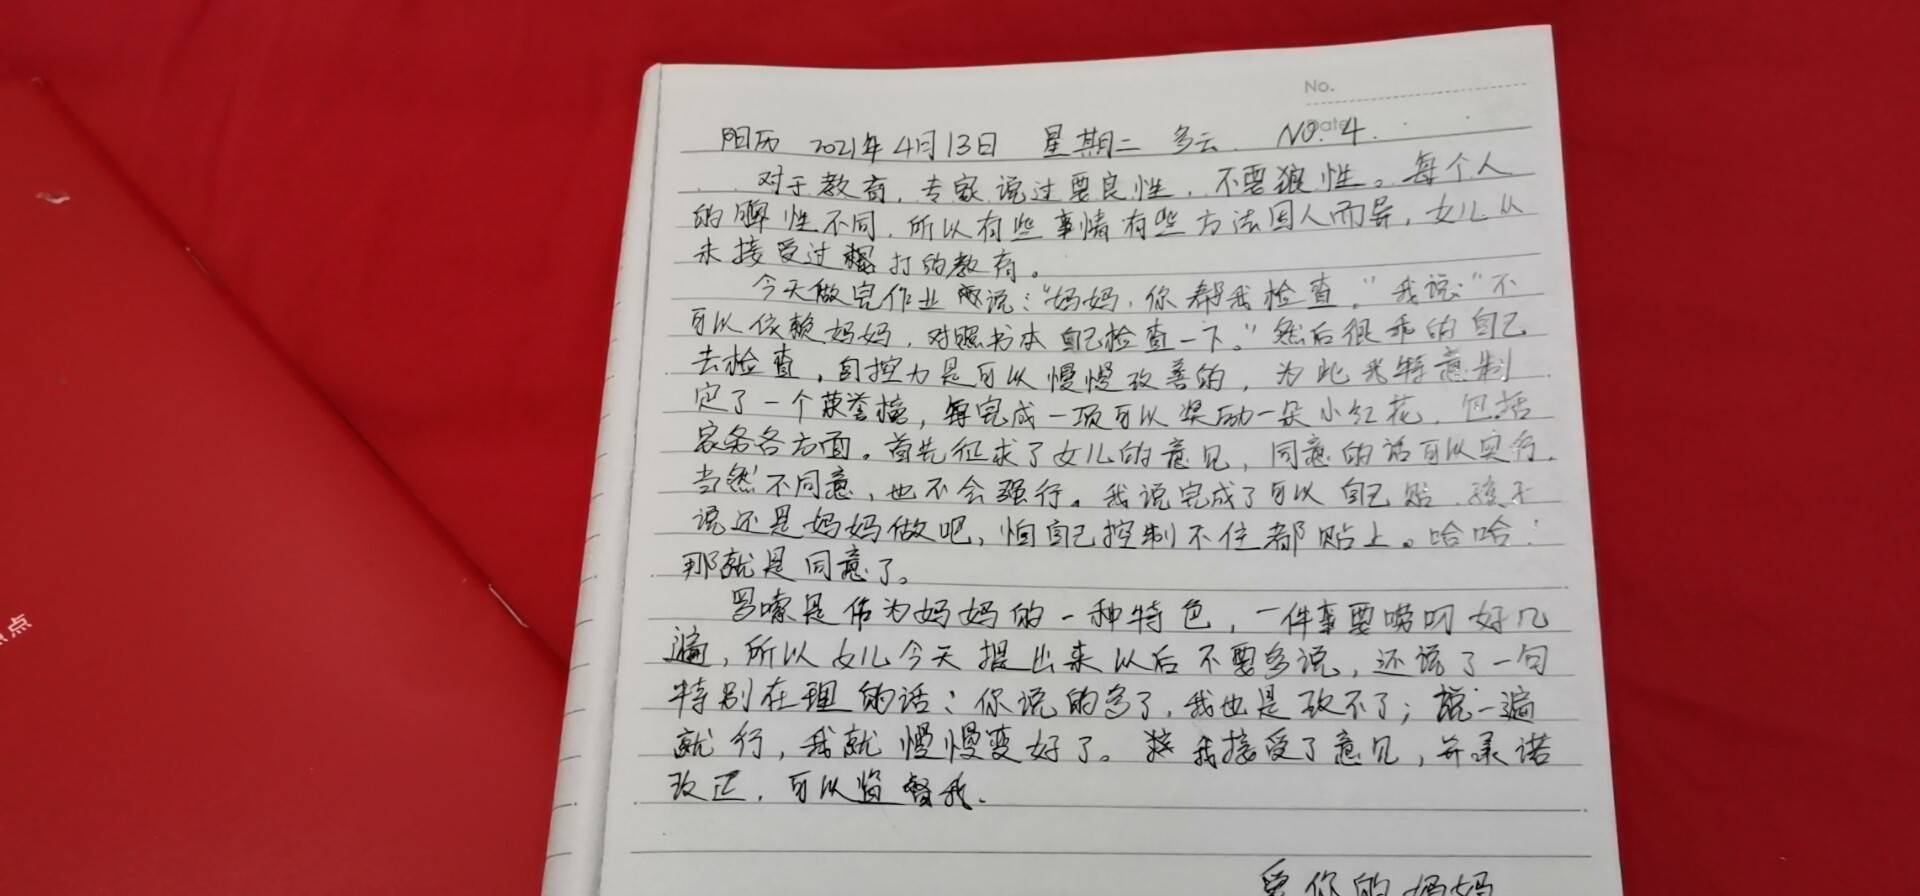 No.
Date
阳历 2021年4月13日 星期二 多云 NO.4.
对于教育，专家说过要良性，不要狼性。每个人
的脾性不同，所以有些事情有些方法因人而异，女儿从
未接受过棍打的教育。
今天做完作业说："妈妈，你帮我检查，"我说："不
可以依赖妈妈，对照书本自己检查一下。"然后很乖的自己
去检查，自控力是可以慢慢改善的，为此我特意制
定了一个荣誉榜，每完成一项可以奖励一朵小红花，包括
家务各方面。首先征求了女儿的意见，同意的话可以实行，
当然不同意，也不会强行。我说完成了可以自己贴，孩子
说还是妈妈做吧，怕自己控制不住都贴上。哈哈！
那就是同意了。
罗嗦是作为妈妈的一种特色，一件事要唠叨好几
遍，所以女儿今天提出来以后不要多说，还说了一句
特别在理的话：你说的多了，我也是改不了；说一遍
就行，我就慢慢变好了。我接受了意见，并承诺
改正，可以监督我.
爱你的妈妈
点